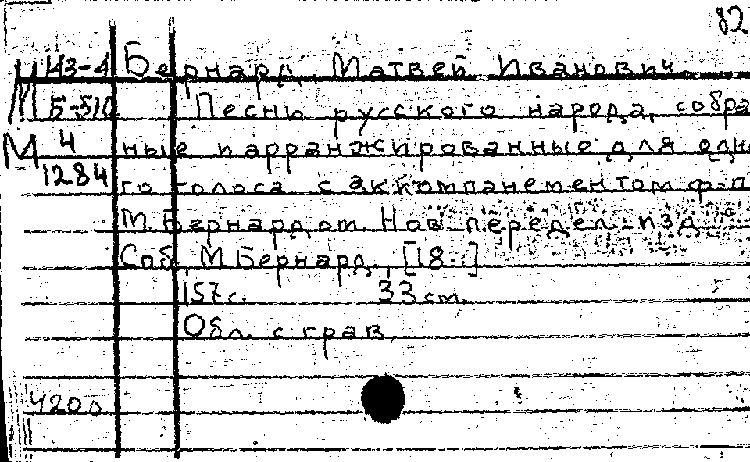 82
М 43-4 Бернард, Матвей Иванович.
Б-510 Песни русского народа, собра
М 4 ные и арранжированные для одно
1284 го голоса с аккомпанементом ф-п
М. Бернардом. Нов. передел. изд.
Соб. М. Бернард, [18--]
157 с. 33 см.
Обл. с грав.
4200